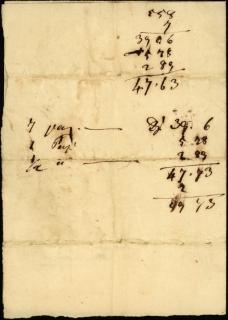 558
7
39 06
5 78
2 89
47.63
7 pay. — Dr 39. 6
1 Pay
5 78
½ " — 2 89
47.73
2
49 73